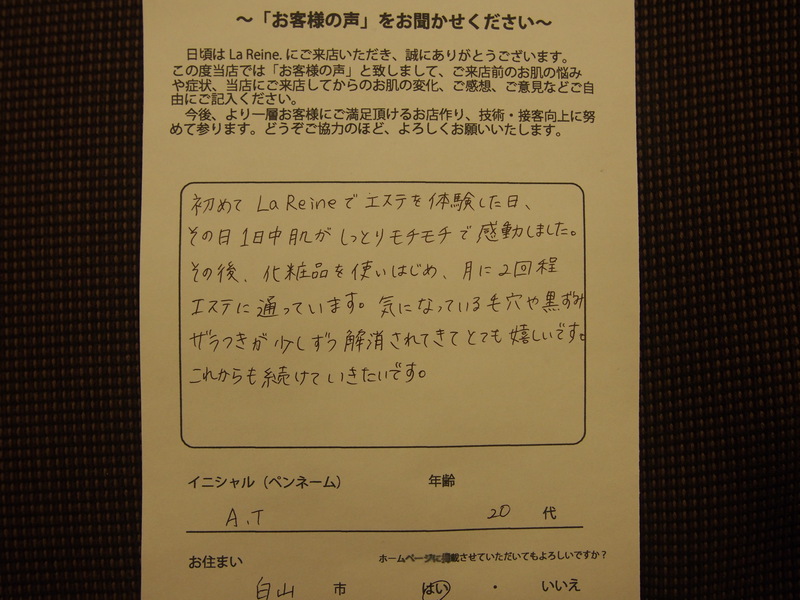 ～「お客様の声」をお聞かせください～
日頃は La Reine. にご来店いただき、誠にありがとうございます。
この度当店では「お客様の声」と致しまして、ご来店前のお肌の悩み
や症状、当店にご来店してからのお肌の変化、ご感想、ご意見などご自
由にご記入ください。
今後、より一層お客様にご満足頂けるお店作り、技術・接客向上に努
めて参ります。どうぞご協力のほど、よろしくお願いいたします。
初めて La Reineで エステを体験した日、
その日 1日中肌が しっとりモチモチで 感動しました。
その後、化粧品を使いはじめ、月に2回程
エステに通っています。気になっている毛穴や黒ずみ
ザラつきが 少しずつ解消されてきてとても嬉しいです。
これからも続けていきたいです。
イニシャル（ペンネーム） 年齢
A.T 20 代
お住まい ホームページに掲載させていただいてもよろしいですか？
白山 市 はい ・ いいえ